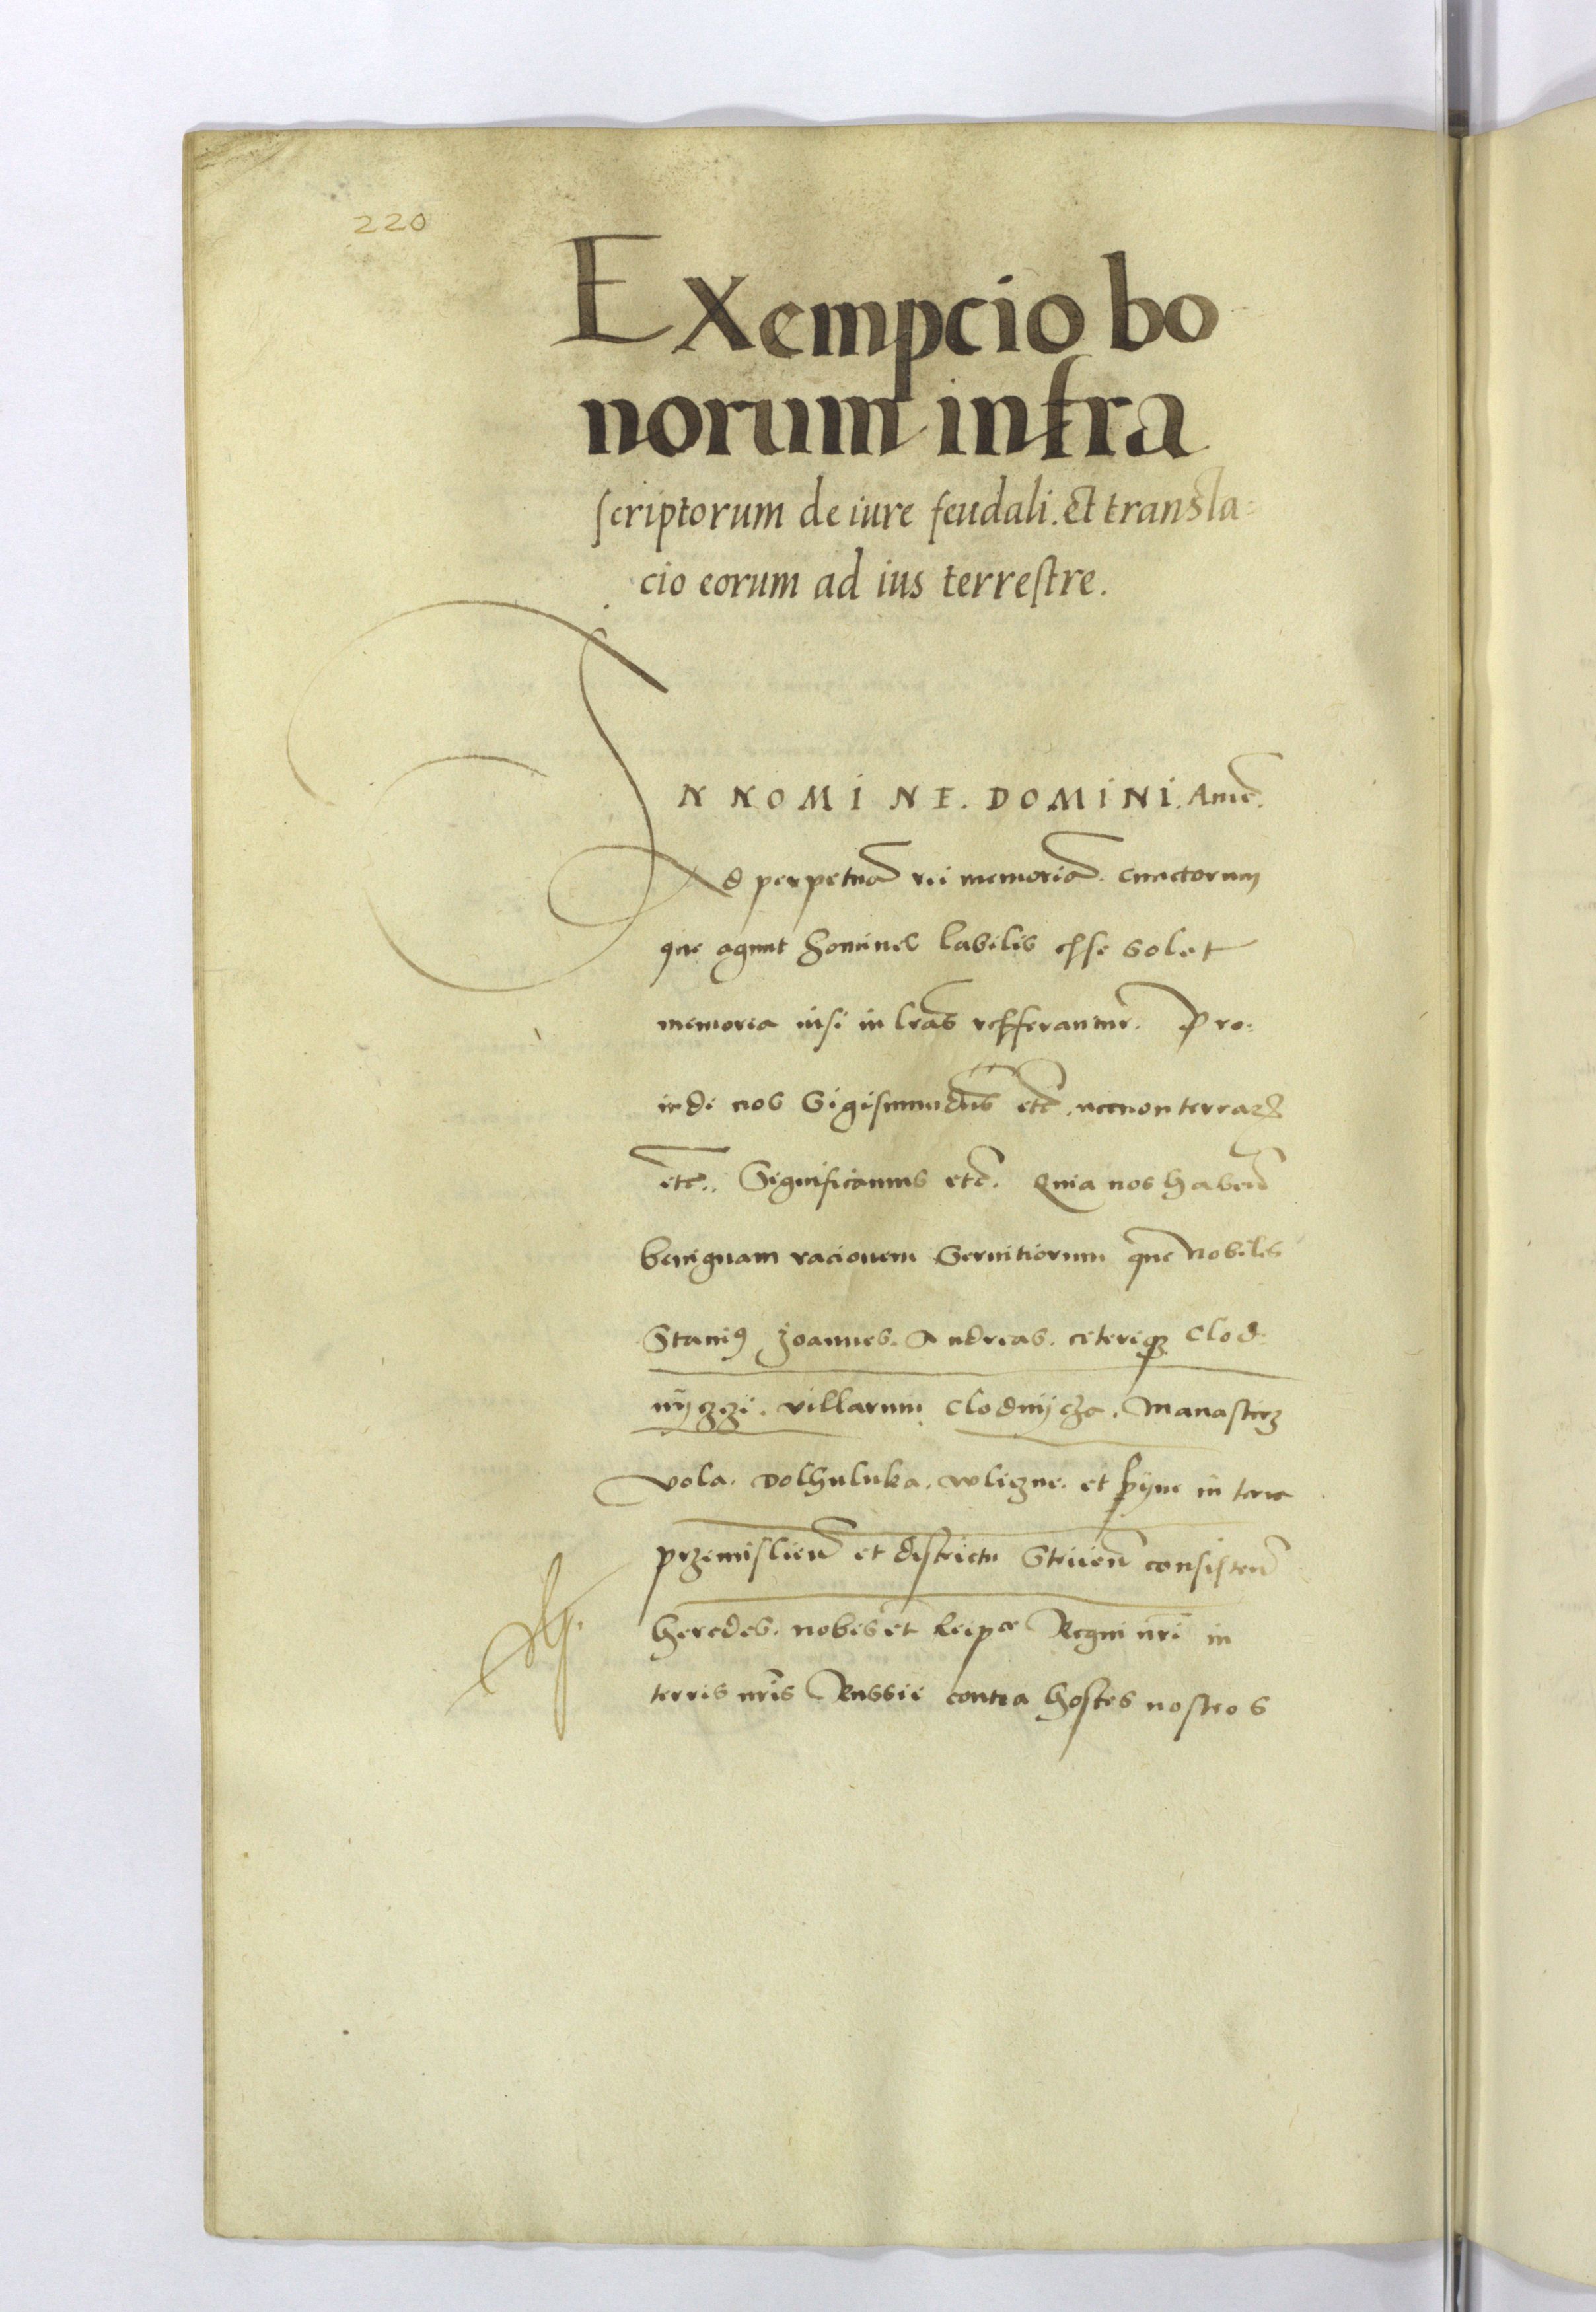 220
Exempcio bo
norum infra
scriptorum de iure feudali. Et transla=
cio eorum ad ius terrestre.
IN NOMINE. DOMINI. Amē.
Ad perpetuā rei memoriā. cunctorum
que agunt homines labilis esse solet
memoria nisi in lrās refferantur. Pro=
inde nos Sigismundus etc̄. necnon terrarꝫ
etc̄. Significamus etc̄. Quia nos habeñ
benignam racionem Servitiorum que Nobiles
Stanis9 Joannes. Andreas. ceteriqꝫ Clod=
nyczi. villarum Clodnycza. Manasterz
vola. Dolhuluka. Wligne. et in terra
przemislieñ et districtu Strijeñ consisteñ
heredes. nobis et Reipce Regni nrī in
terris nrīs Russie contra hostes nostros